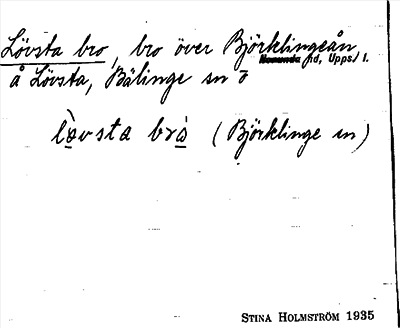 Lövsta bro, bro över Björklingeån
hd, Upps. l.
å Lövsta, Bälinge sn
lövsta brò (Björklinge sn)
STINA HOLMSTRÖM 1935